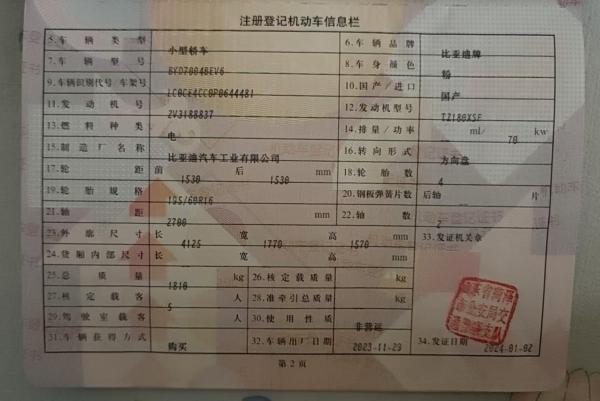 注册登记机动车信息栏
5.车辆类型 小型轿车 6.车辆品牌 比亚迪牌
7.车辆型号 BYD7004BEV6 8.车身颜色 粉
9.车辆识别代号/车架号 LC0CE4CC0P0644481 10.国产/进口 国产
11.发动机号 2V3188837 12.发动机型号 TZ180XSF
13.燃料种类 电 14.排量/功率 ml/ 70 kw
15.制造厂名称 比亚迪汽车工业有限公司 16.转向形式 方向盘
17.轮距 前 1530 后 1530 mm 18.轮胎数 4
19.轮胎规格 195/60R16 20.钢板弹簧片数 后轴 片
21.轴距 2700 mm 22.轴数 2
23.外廓尺寸 长 4125 宽 1770 高 1570 mm 33.发证机关章
24.货厢内部尺寸 长 宽 高 mm
25.总质量 1810 kg 26.核定载质量 kg
27.核定载客 5 人 28.准牵引总质量 kg
29.驾驶室载客 人 30.使用性质 非营运
31.车辆获得方式 购买 32.车辆出厂日期 2023-11-29 34.发证日期 2024-01-02
第2页